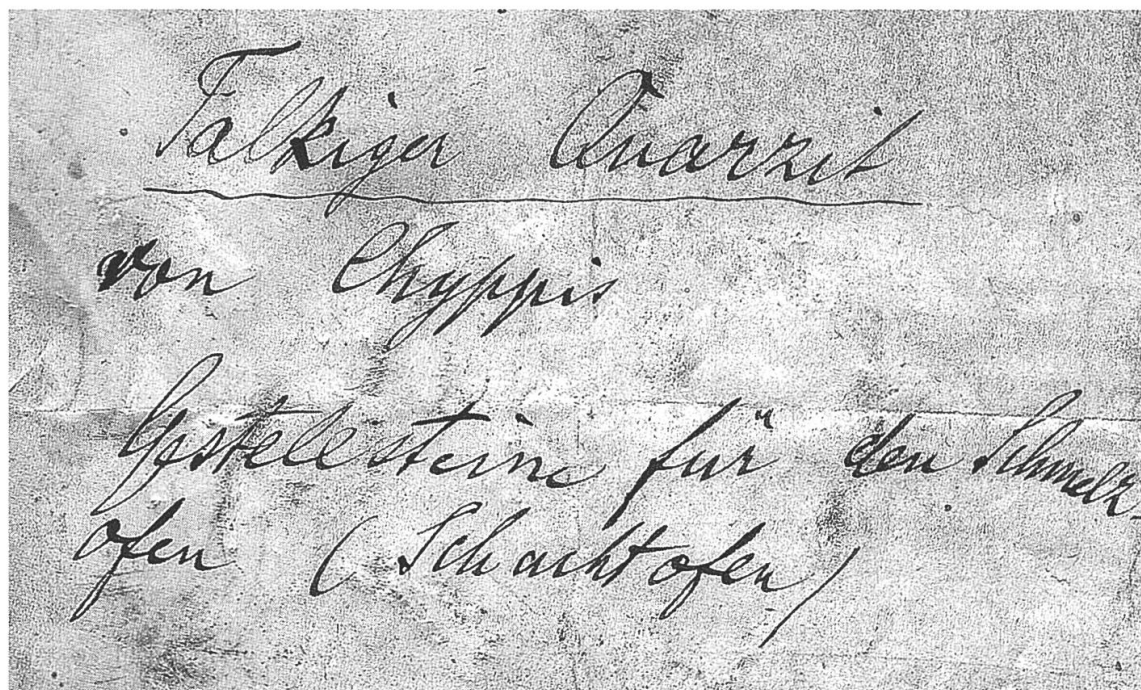 Talkiger Quarzit
von Chyppis
Gestellsteine für den Schmelz-
ofen (Schachtofen)